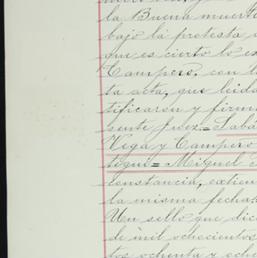 la Buena muert
bajo la protesta
que es cierto lo ex
Campero, con lo
ta acta, que leid
tificaron y firm
sente Juez= Sab
Vega y Campero
tigo= Miguel
constancia, extien
la misma fecha
Un sello que dic
de mil ochocientos
tos ochenta y och